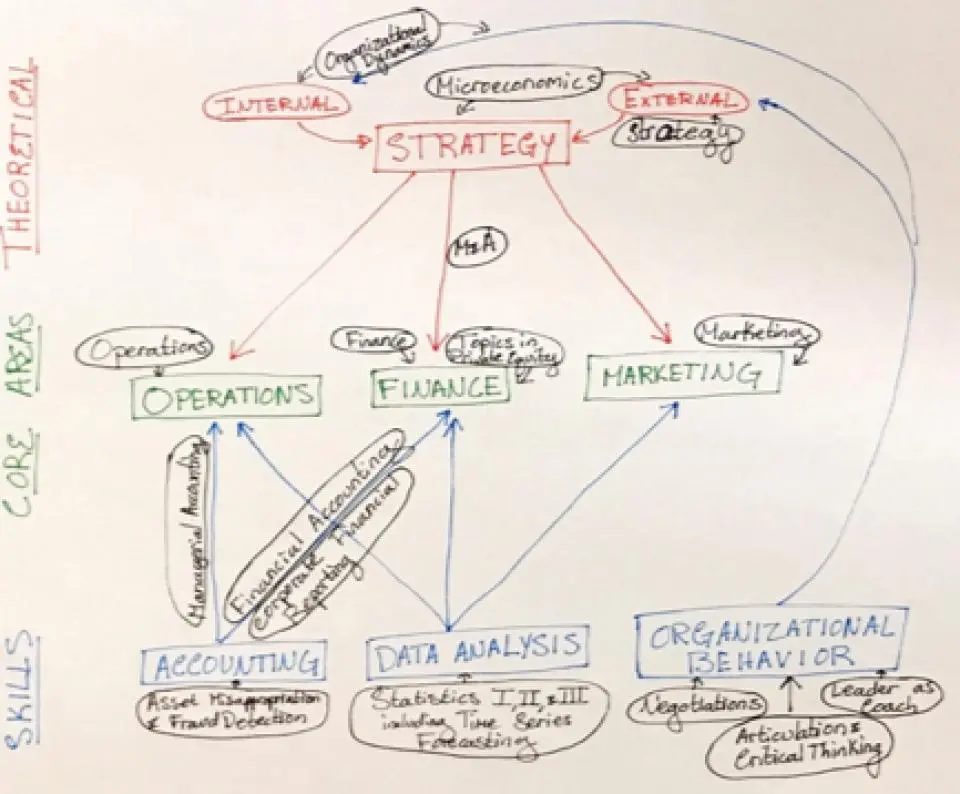 THEORETICAL
Organizational
Dynamics
Microeconomics
INTERNAL
EXTERNAL
Strategy
STRATEGY
M&A
CORE AREAS
Operations
Finance
Topics in
Private Equity
Marketing
OPERATIONS
FINANCE
MARKETING
Managerial Accounting
Financial Accounting
Corporate Financial
Reporting
SKILLS
ACCOUNTING
DATA ANALYSIS
ORGANIZATIONAL
BEHAVIOR
Asset Misappropriation
& Fraud Detection
Statistics I, II, & III
including Time Series
Forecasting
Negotiations
Articulation &
Critical Thinking
Leader as
Coach